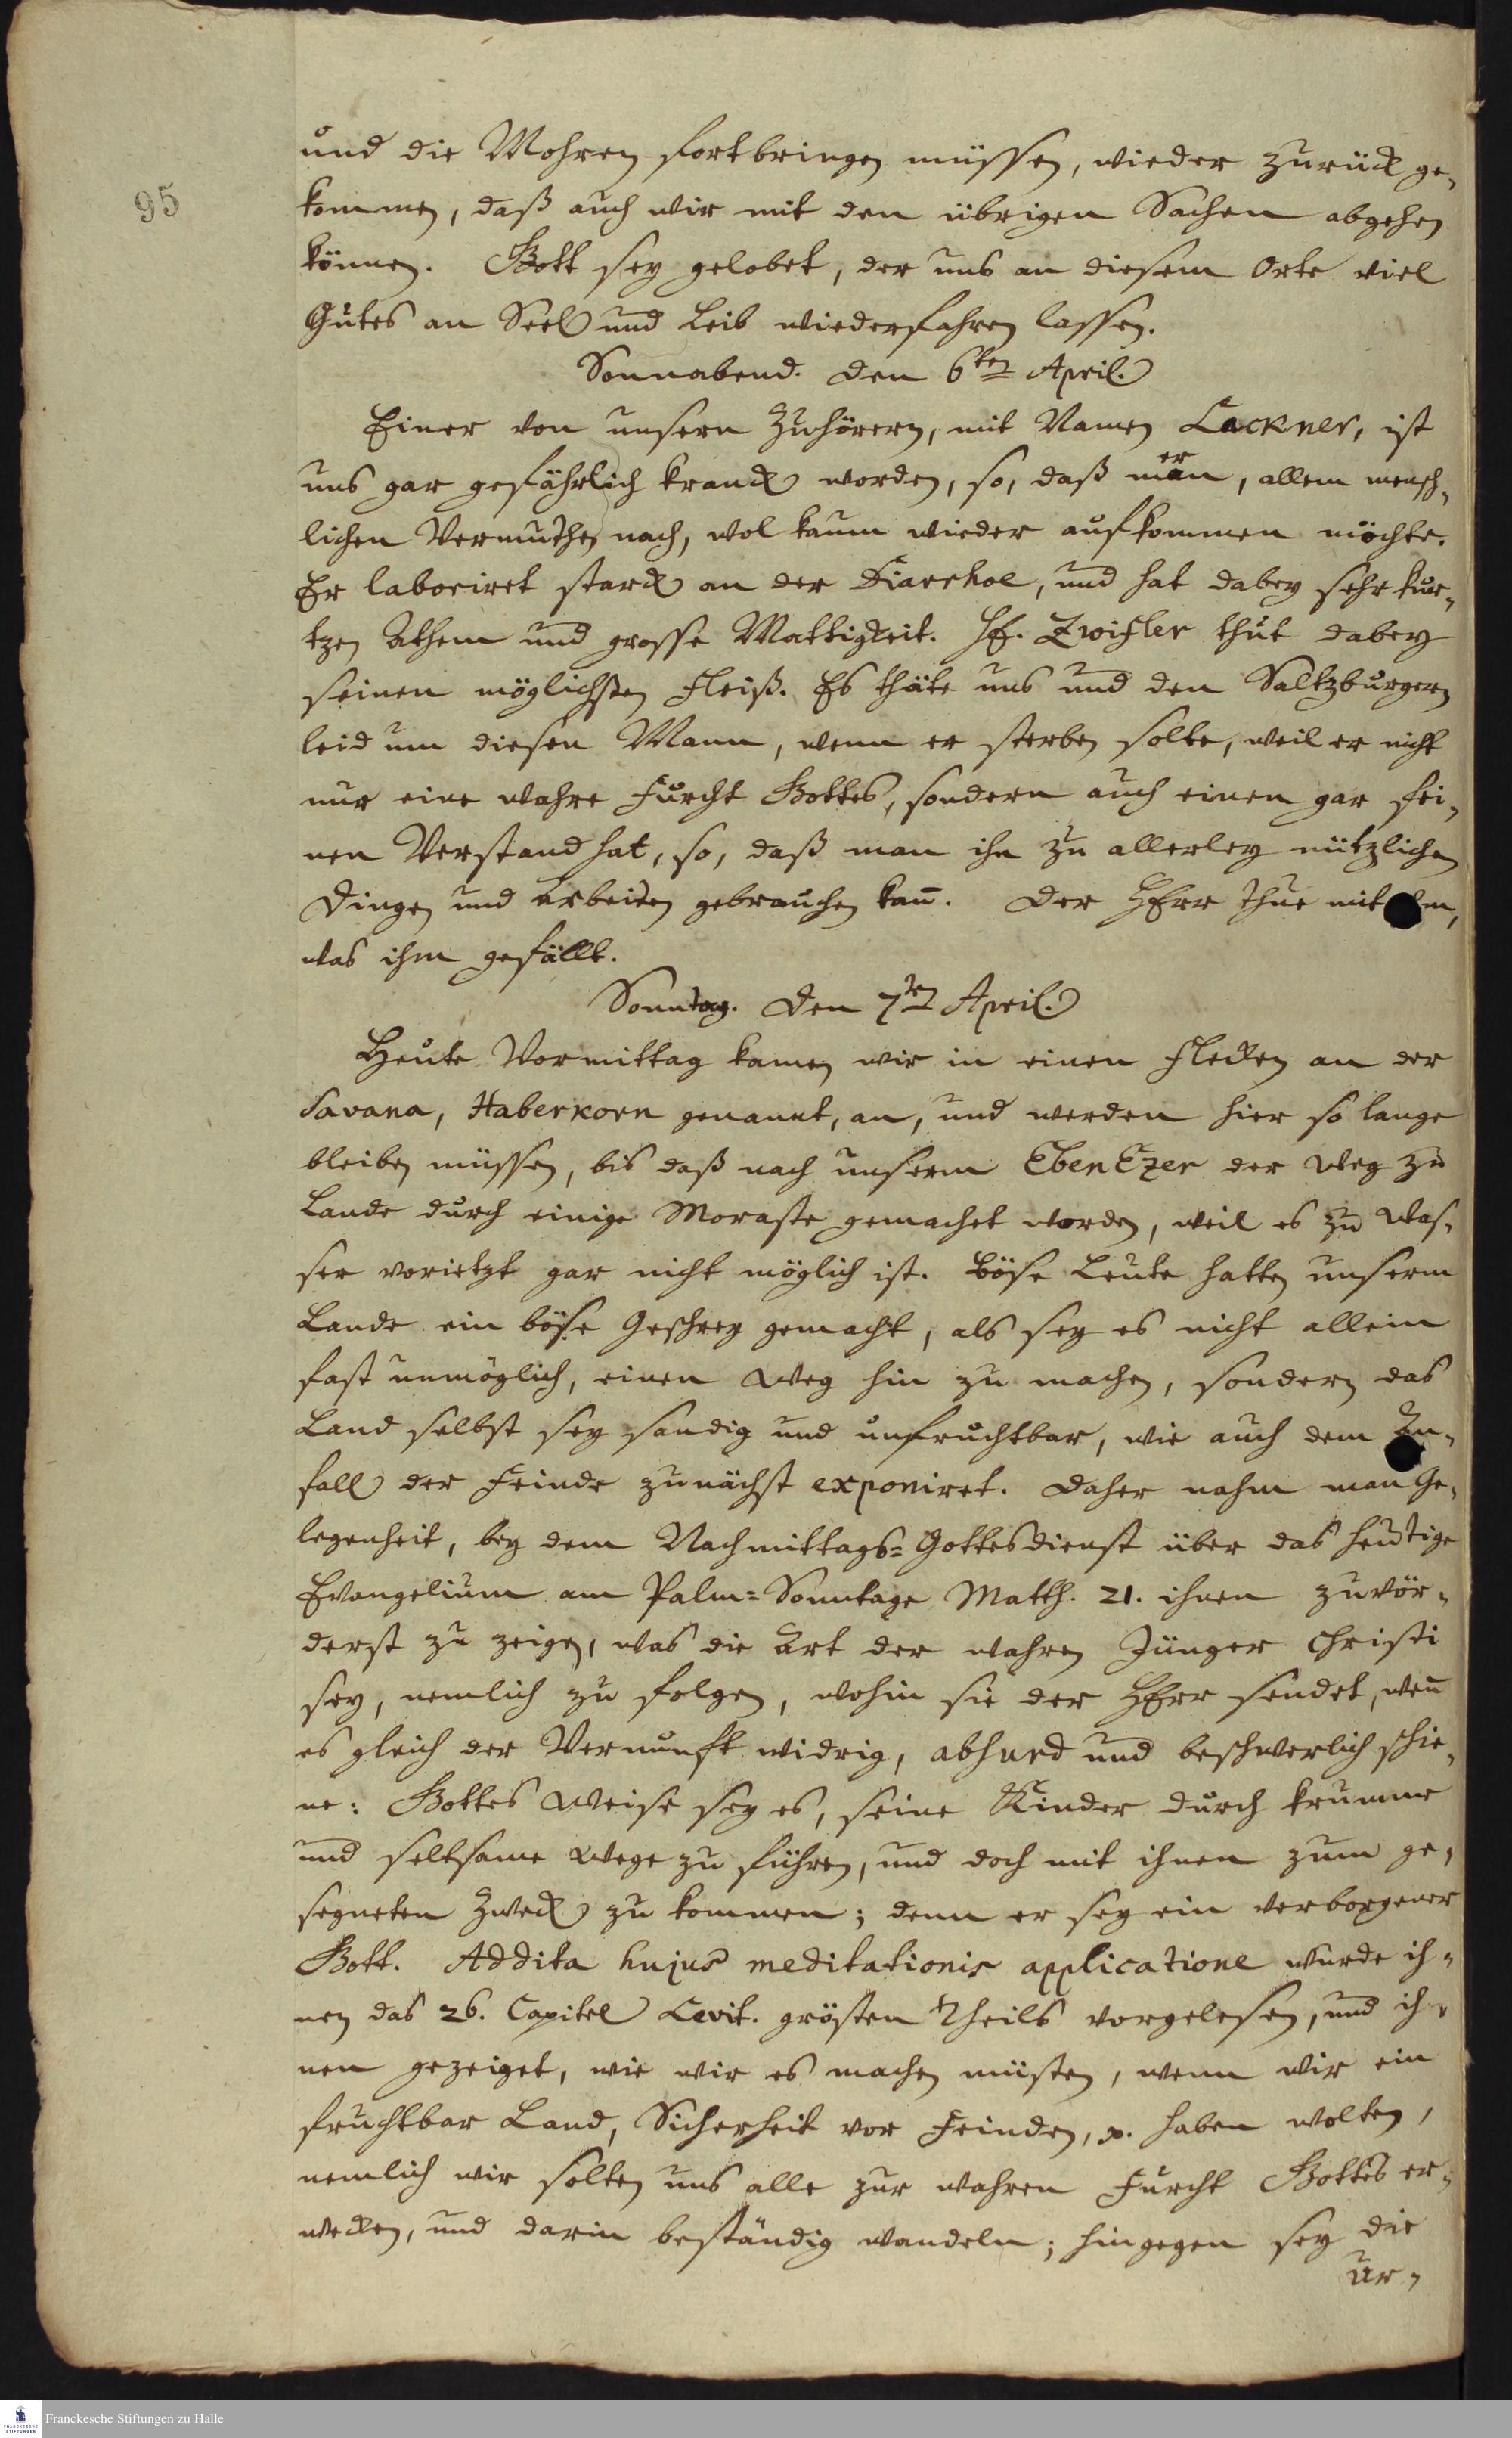 und die Mohren fortbringen müssen, wieder zurück ge-
95
kommen, daß auch wir mit den übrigen Sachen abgehen
können. Gott sey gelobet, der uns an diesem Orte viel
Gutes an Seel und Leib wiederfahren lassen.
Sonnabend. den 6ten April.
Einer von unsern Zuhörern, mit Namen Lackner, ist
uns gar gefährlich kranck worden, so, daß man er, allem mensch-
lichen Vermuthen nach, wol kaum wieder aufkommen möchte.
Er laboriret starck an der Diarrhoe, und hat dabey sehr kur-
tzen Athem und grosse Mattigkeit. Hr. Zwifler thut dabey
seinen möglichsten Fleiß. Es thäte uns und den Saltzburgern
leid um diesen Mann, wenn er sterben solte, weil er nicht
nur eine wahre Furcht Gottes, sondern auch einen gar fei-
nen Verstand hat, so, daß man ihn zu allerley nützlichen
Dingen und Arbeiten gebrauchen kan̄. Der HErr thue mit
was ihm gefällt.
Sonntag. den 7ten April.
Heute Vormittag kamen wir in einen Flecken an der
Savana, Haberkorn genannt, an, und werden hier so lange
bleiben müssen, bis daß nach unserm EbenEzer der Weg zu
Lande durch einige Moraste gemachet worden, weil es zu Was-
ser vorietzt gar nicht möglich ist. Böse Leute hatten unserm
Lande ein böse Geschrey gemacht, als sey es nicht allein
fast unmöglich, einen Weg hin zu machen, sondern das
Land selbst sey sandig und unfruchtbar, wie auch dem
fall der Feinde zunächst exponiret. Daher nahm man Ge-
legenheit, bey dem Nachmittags-Gottesdienst über das heutige
Evangelium am Palm-Sonntage Matth. 21. ihnen zuvör-
derst zu zeigen, was die Art der wahren Jünger Christi
sey, nemlich zu folgen, wohin sie der HErr sendet, wen̄
es gleich der Vernunft widrig, absurd und beschwerlich schie-
ne: Gottes Weise sey es, seine Kinder durch krumme
und seltsame Wege zu führen, und doch mit ihnen zum ge-
segneten Zweck zu kommen; denn er sey ein verborgener
Gott. Addita hujus meditationis applicatione wurde ih-
nen das 26. Capitel Levit. grösten Theils vorgelesen, und ih-
nen gezeiget, wie wir es machen müsten, wenn wir ein
fruchtbar Land, Sicherheit vor Feinden, p. haben wolten,
nemlich wir solten uns alle zur wahren Furcht Gottes er-
wecken, und darin beständig wandeln; hingegen sey die
Ur-
Franckesche Stiftungen zu Halle